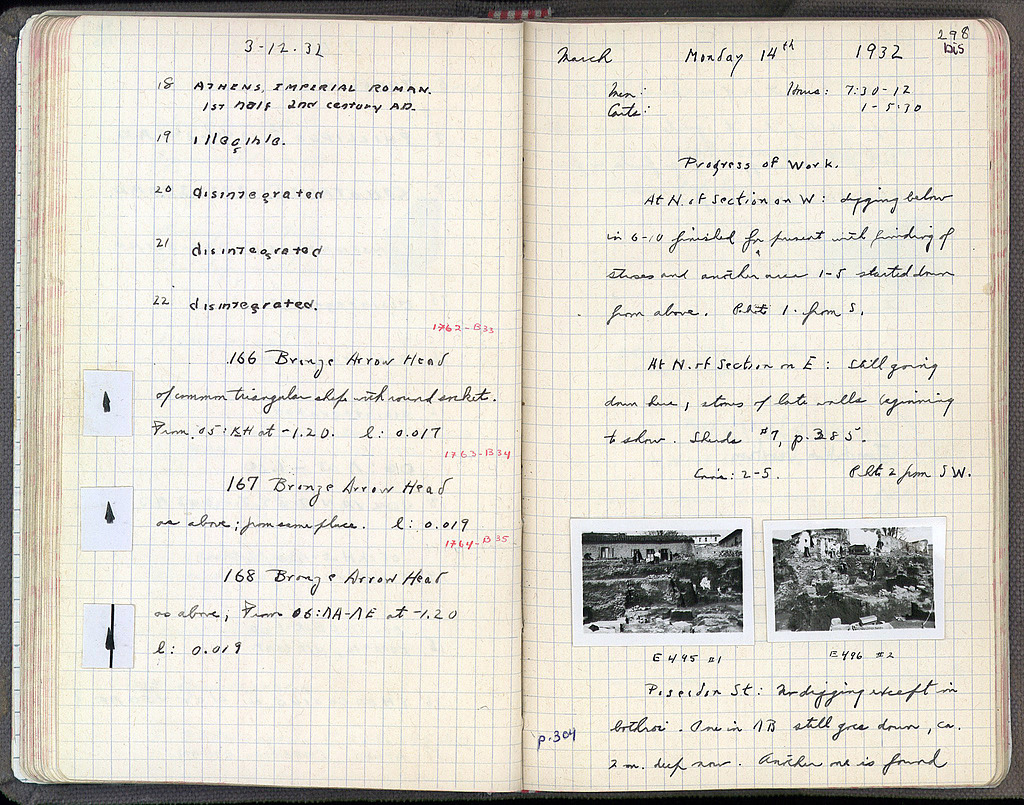 3-12-32
18 ATHENS, IMPERIAL ROMAN.
1ST half 2nd century A.D.
19 illegible.
20 disintegrated
21 disintegrated
22 disintegrated.
1762-B33
166 Bronze Arrow Head
of common triangular shape with round socket.
From 05: at -1.20. l: 0.017
1763-B34
167 Bronze Arrow Head
as above; from same place. l: 0.019
1764-B35
168 Bronze Arrow Head
as above; From 06:ΛΑ-ΛΕ at -1.20
l: 0.019
298
bis
March Monday 14th 1932
Men: Hours: 7:30-12
Carts: 1-5:30
Progress of Work.
At N. of Section on W: digging below
in 6-10 finished for present with finding of
and another area 1-5 started down
from above. Photo 1. from S.
At N. of Section on E: Still going
down here, stones of late walls beginning
to show. Sherds #7, p. 285.
Coins: 2-5. Photo 2 from SW.
E 495 #1
E 496 #2
Poseidon St: No digging except in
bothroi. One in ΛB still goes down, ca.
p. 304
2 m. deep now. Another one is found